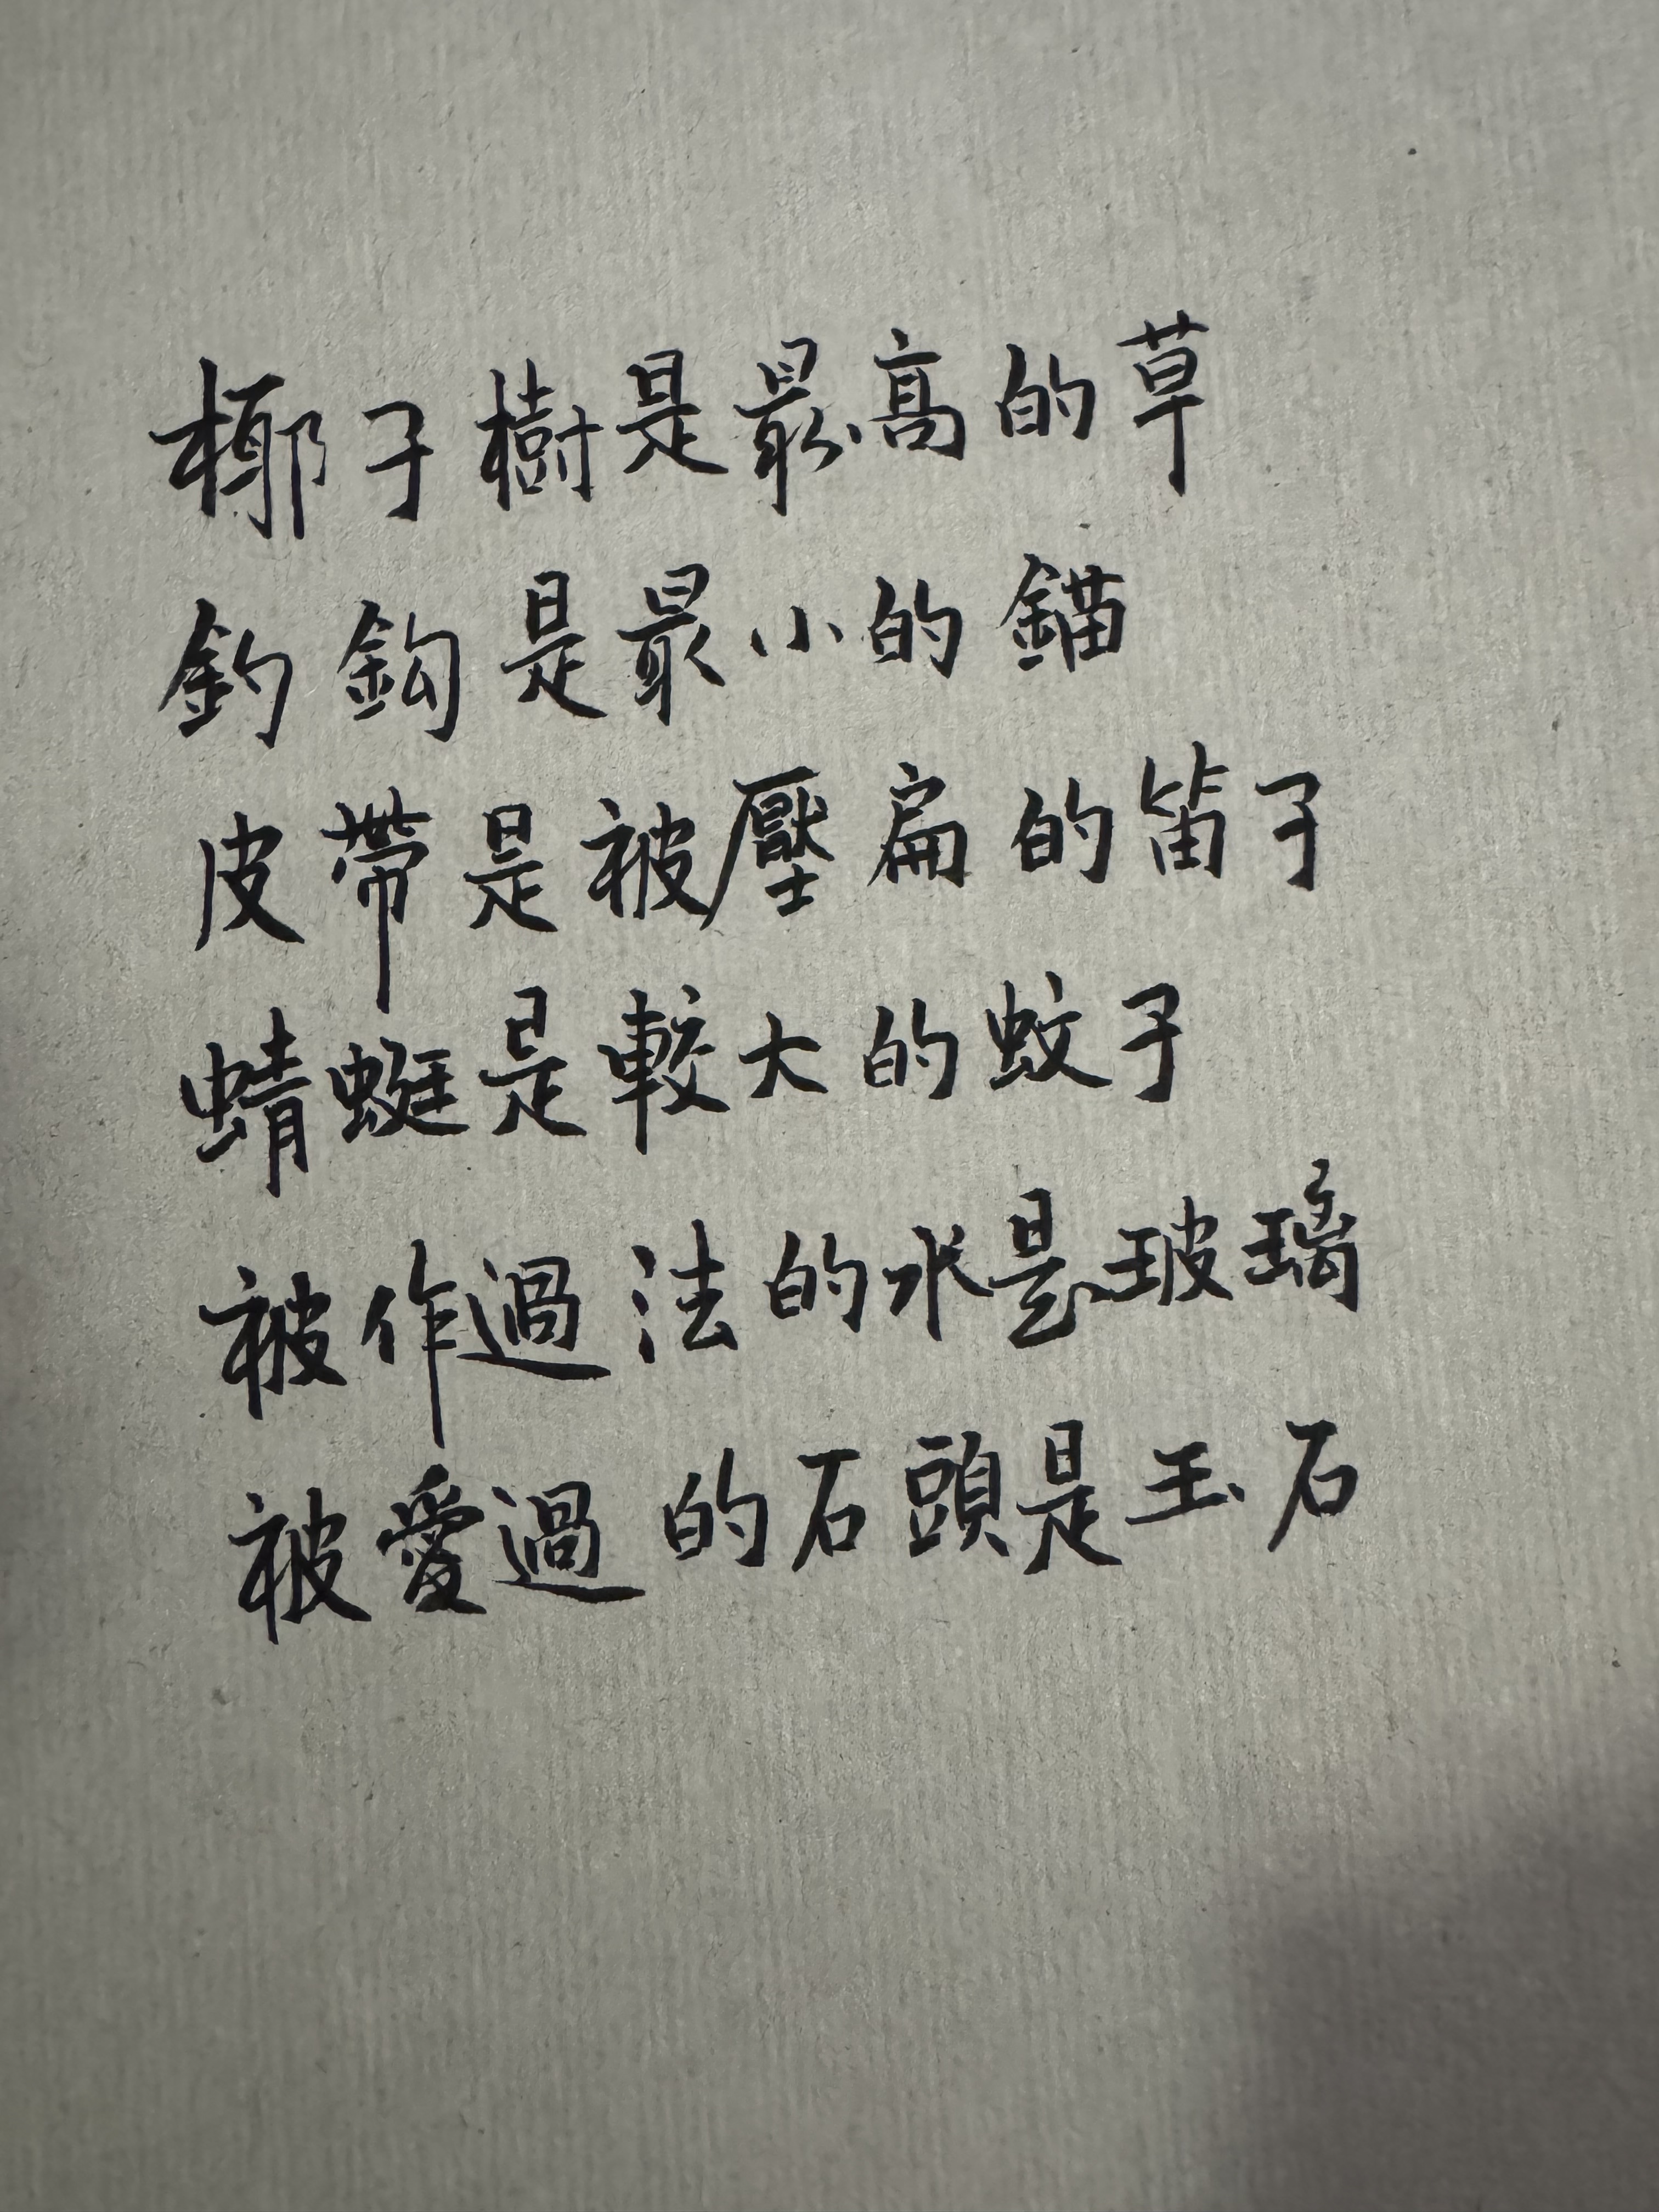 椰子樹是最高的草
釣鈎是最小的錨
皮帶是被壓扁的笛子
蜻蜓是較大的蚊子
被作過法的水是玻璃
被愛過的石頭是玉石